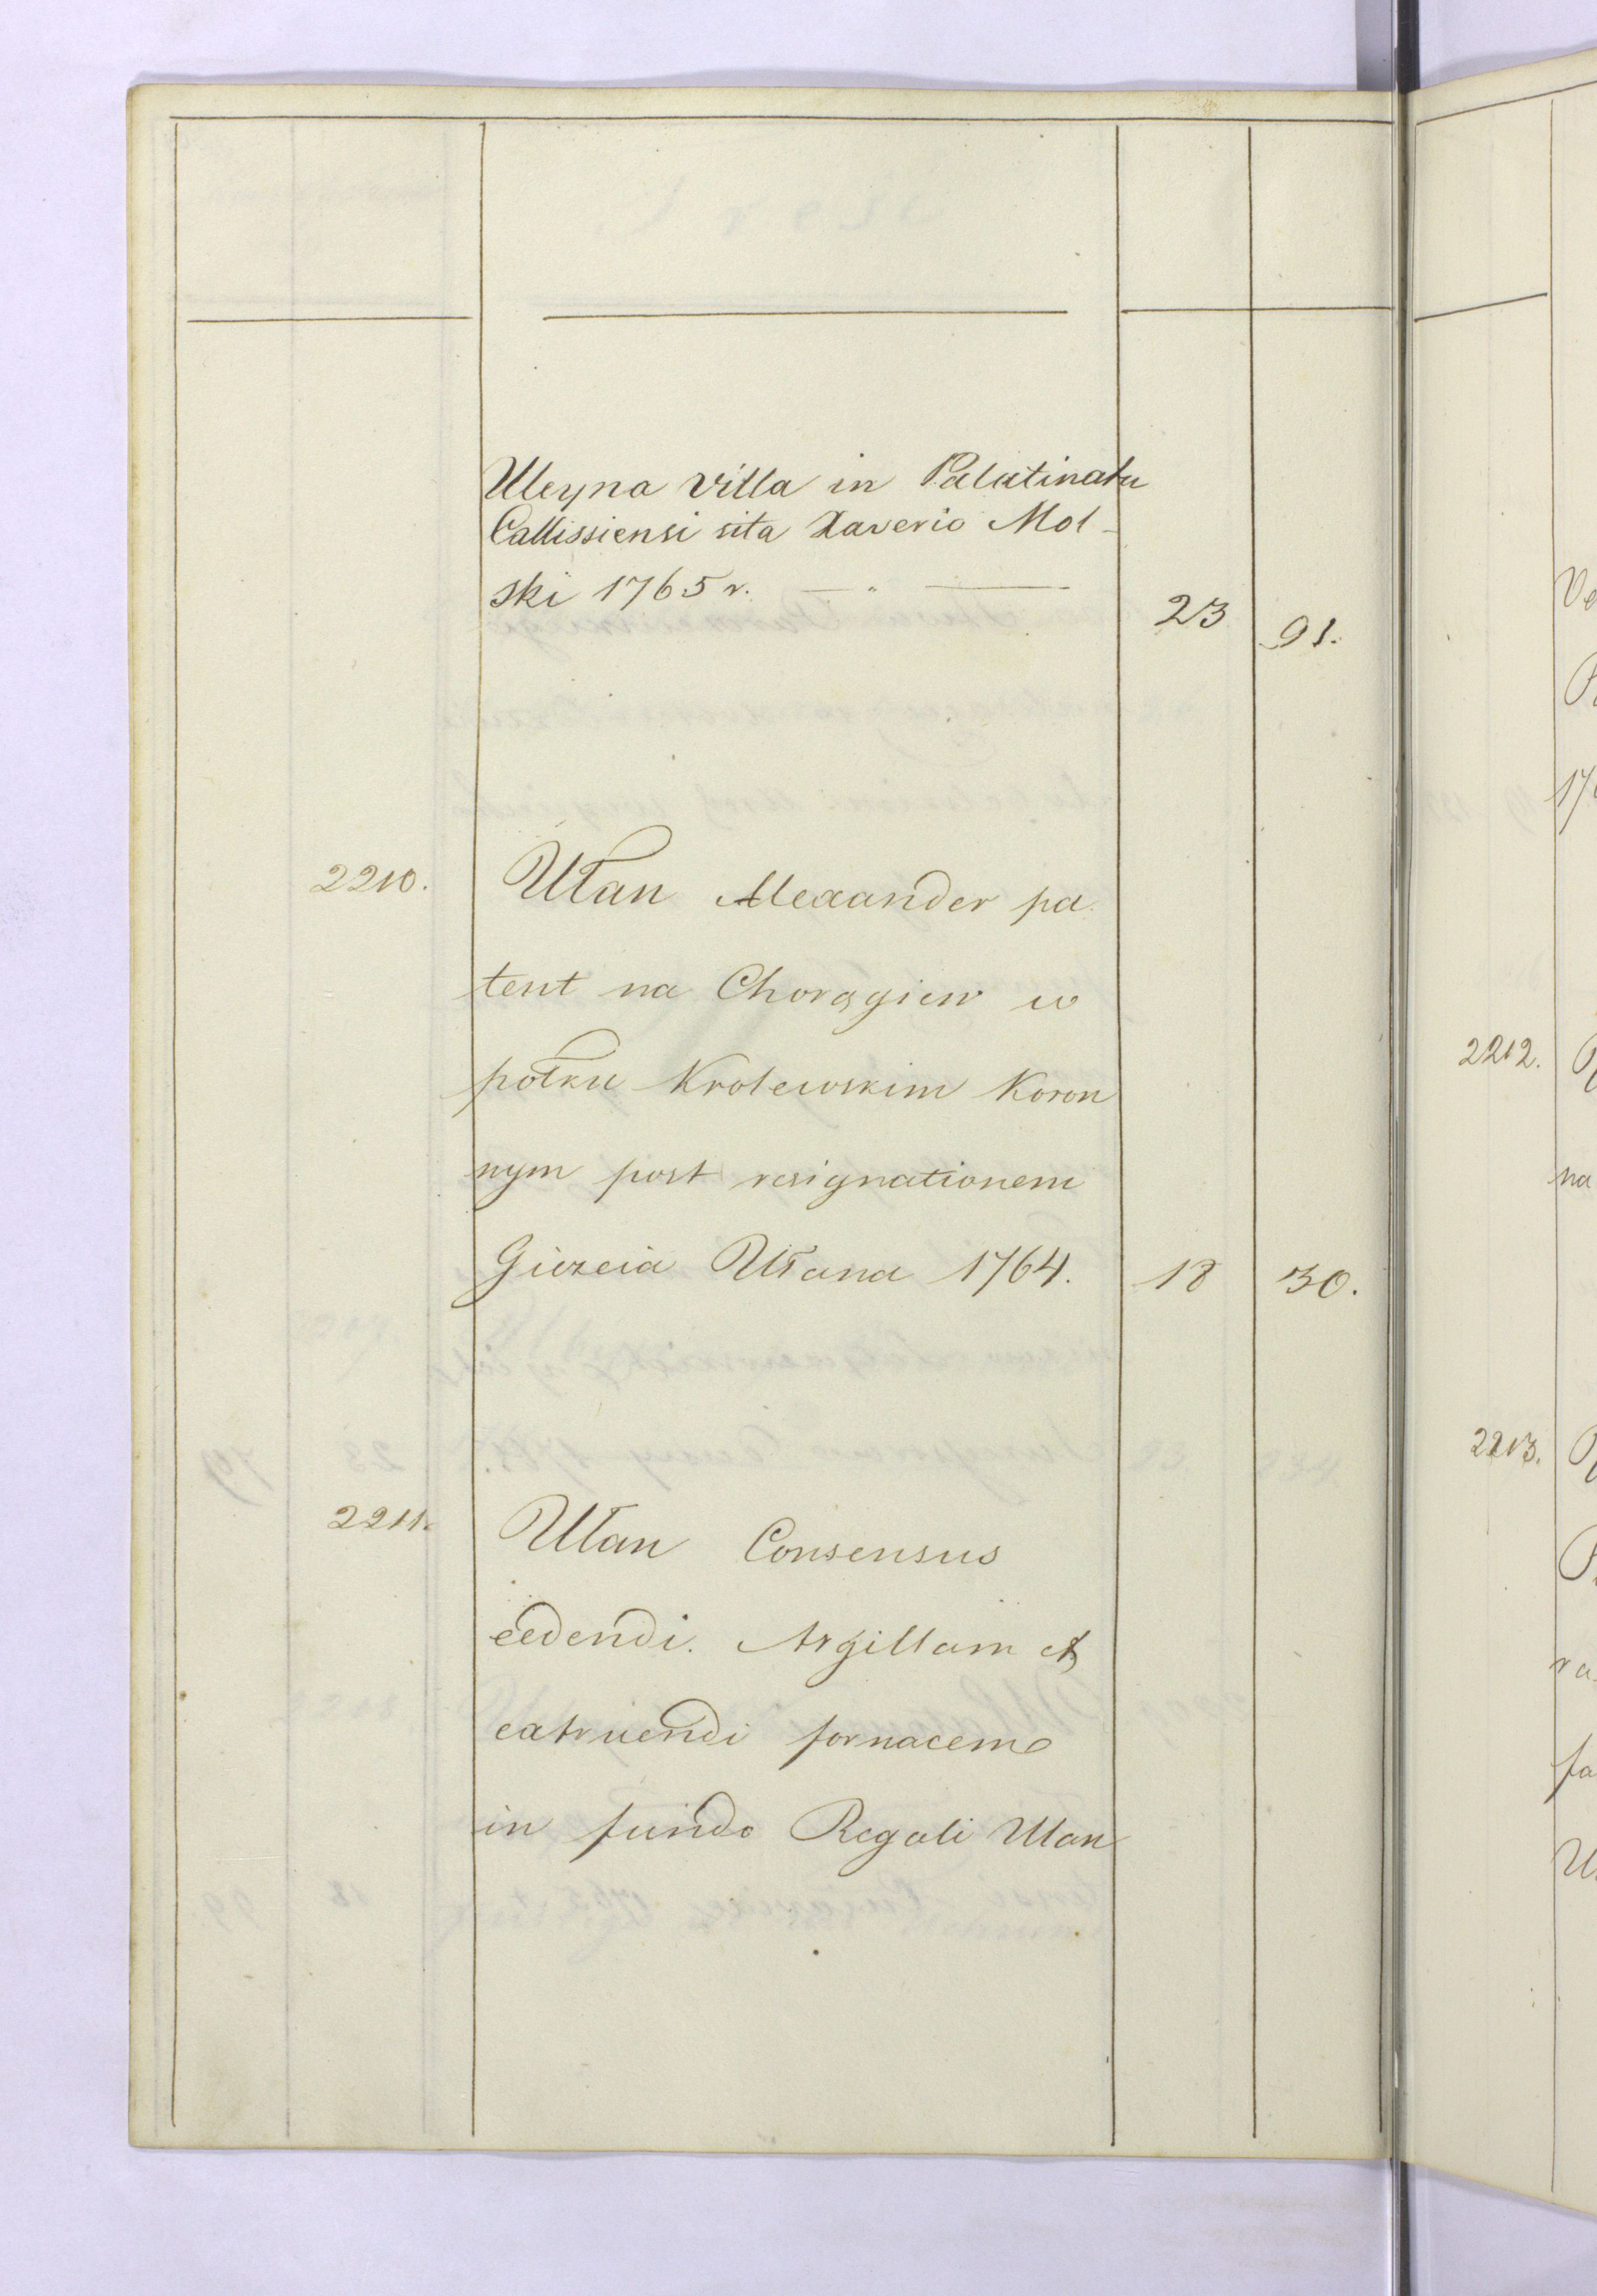 Uleyna villa in Palatinatu
Callissiensi sita Xaverio Mol-
ski 1765 r. — " — 23 91.
2210. Ułan Alexander pa
tent na Chorągiew w
połku Krolewskim Koron
nym post resignationem
Giezeia Ułana 1764. 18 30.
2211. Ulan Consensus
eedendi. Argillam et
extruendi fornacem
in fundo Regali Ulan
2212.
na
2213.